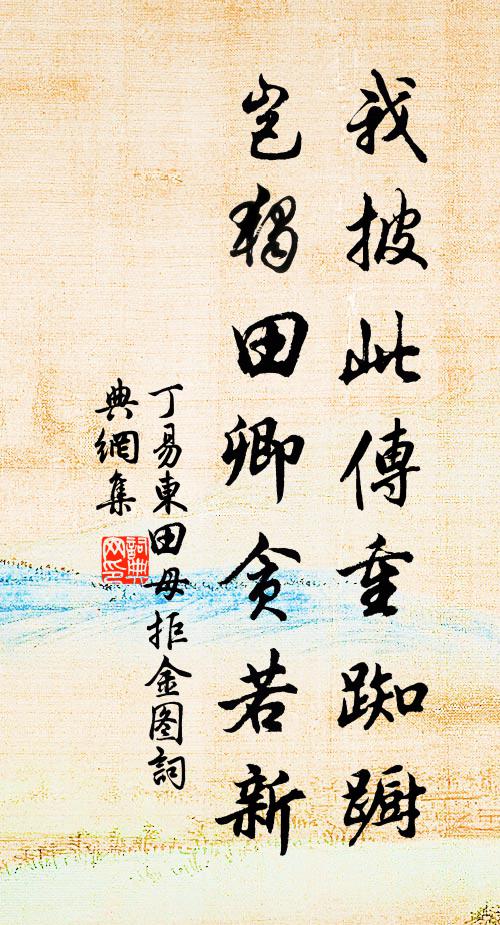 我披此傳重踟躕
豈獨田卿貪若新
丁易東田母拒金图詞
典網集
詞典
网印